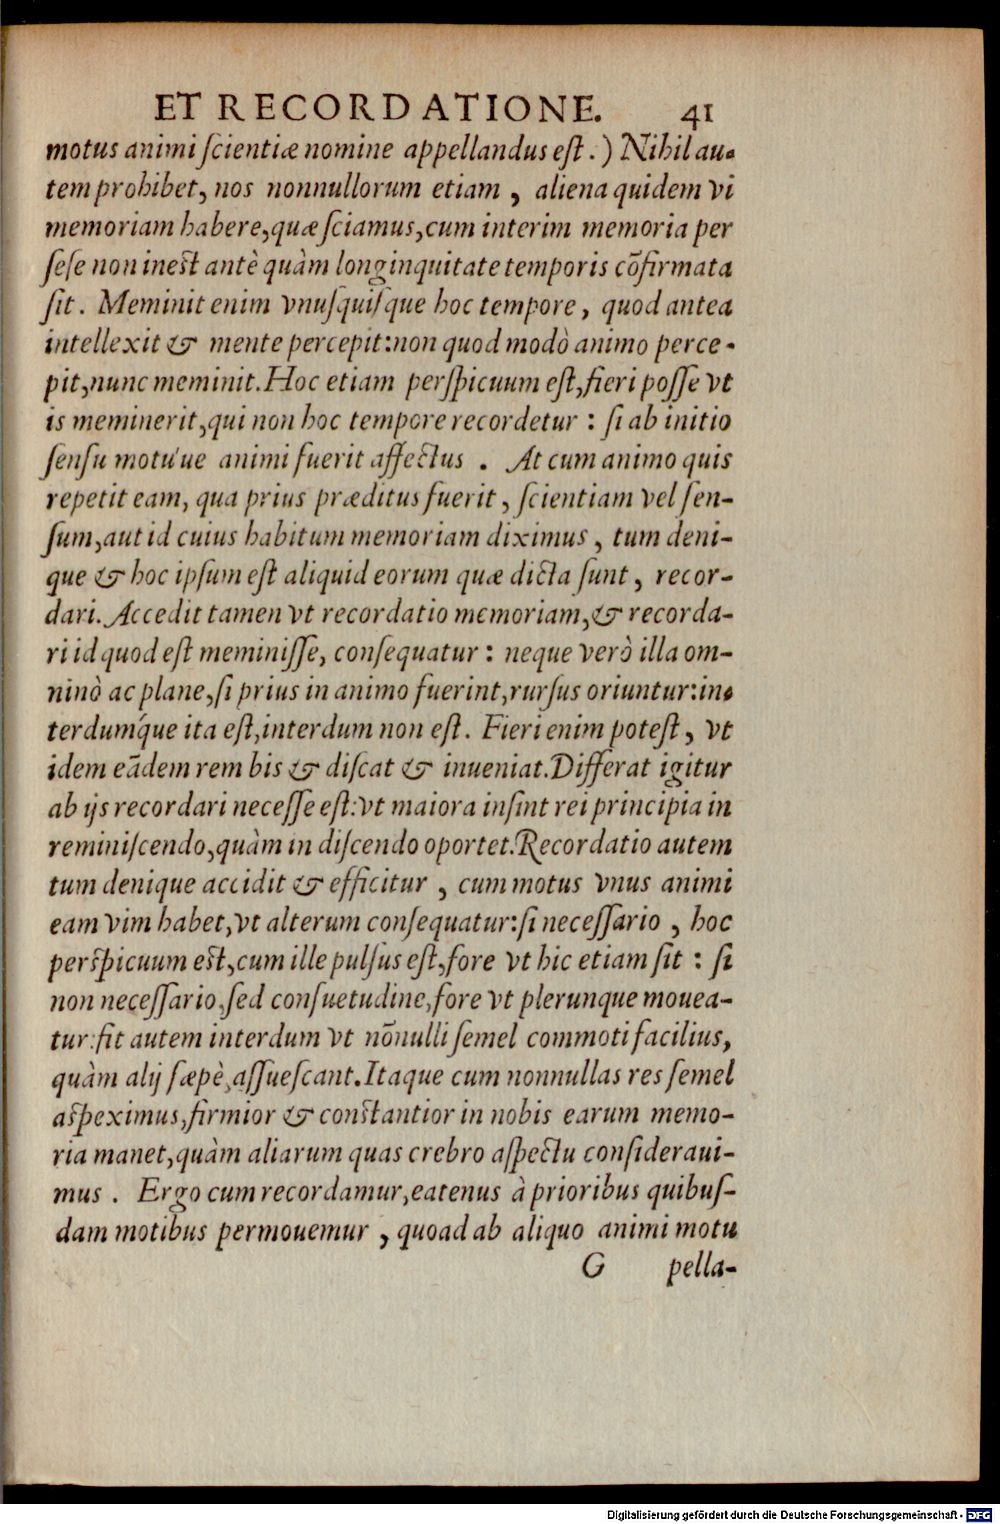 ET RECORDATIONE. 41
motus animi ſcientiæ nomine appellandus eſt.) Nihil au-
tem prohibet, nos nonnullorum etiam, aliena quidem vi
memoriam habere, quæ ſciamus, cum interim memoria per
ſeſe non ineſt antè quàm longinquitate temporis cōfirmata
ſit. Meminit enim vnuſquiſque hoc tempore, quod antea
intellexit & mente percepit: non quod modò animo perce-
pit, nunc meminit. Hoc etiam perſpicuum eſt, fieri poſſe vt
is meminerit, qui non hoc tempore recordetur: ſi ab initio
ſenſu motu'ue animi fuerit affectus. At cum animo quis
repetit eam, qua prius præditus fuerit, ſcientiam vel ſen-
ſum, aut id cuius habitum memoriam diximus, tum deni-
que & hoc ipſum eſt aliquid eorum quæ dicta ſunt, recor-
dari. Accedit tamen vt recordatio memoriam, & recorda-
ri id quod eſt meminiſſe, conſequatur: neque verò illa om-
ninò ac plane, ſi prius in animo fuerint, rurſus oriuntur: in-
terdum´que ita eſt, interdum non eſt. Fieri enim poteſt, vt
idem eādem rem bis & diſcat & inueniat. Differat igitur
ab ijs recordari neceſſe eſt: vt maiora inſint rei principia in
reminiſcendo, quàm in diſcendo oportet. Recordatio autem
tum denique accidit & efficitur, cum motus vnus animi
eam vim habet, vt alterum conſequatur: ſi neceſſario, hoc
perſpicuum eſt, cum ille pulſus eſt, fore vt hic etiam ſit: ſi
non neceſſario, ſed conſuetudine, fore vt plerunque mouea-
tur: fit autem interdum vt nōnulli ſemel commoti facilius,
quàm alij ſæpè, aſſueſcant. Itaque cum nonnullas res ſemel
aſpeximus, firmior & conſtantior in nobis earum memo-
ria manet, quàm aliarum quas crebro aſpectu conſideraui-
mus. Ergo cum recordamur, eatenus à prioribus quibuſ-
dam motibus permouemur, quoad ab aliquo animi motu
G pella-
Digitalisierung gefördert durch die Deutsche Forschungsgemeinschaft - DFG